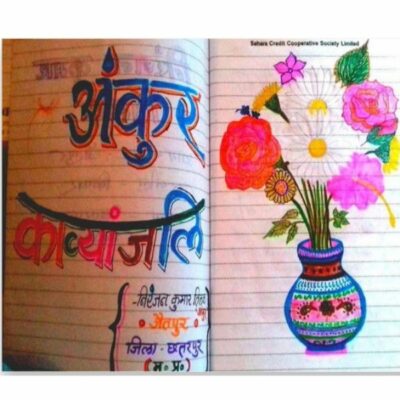 अंकुर
काव्यांजलि
-निरंजन कुमार
जैतपुर
जिला - छतरपुर
(म॰ प्र॰)
Sahara Credit Cooperative Society Limited